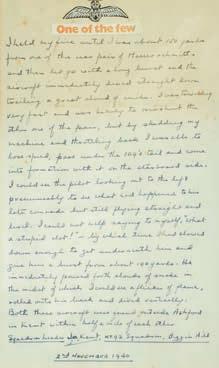 One of the few
I held my fire until I was about 150 yards
from one of the rear pair of Messerschmitts
and then let go with a long burst and the
aircraft immediately dived straight down
trailing a great cloud of smoke. I was travelling
very fast and was likely to overshoot the
other one of the pair, but by skidding my
machine and throttling back I was able to
lose speed, pass under the 109's tail and come
into formation with it on the starboard side.
I could see the pilot looking out to the left
presumably to see what had happened to his
late comrade but still flying straight and
level. I could not help saying to myself, "What
a stupid clot" - by which time I had slowed
down enough to get underneath him and
give him a burst from about 100 yards. He
immediately poured forth clouds of smoke in
the midst of which I could see a flicker of flame,
rolled onto his back and dived vertically.
Both these aircraft were found outside Ashford
in Kent within half a mile of each other
Squadron Leader Kent, No 92 Squadron, Biggin Hill
2nd NOVEMBER 1940